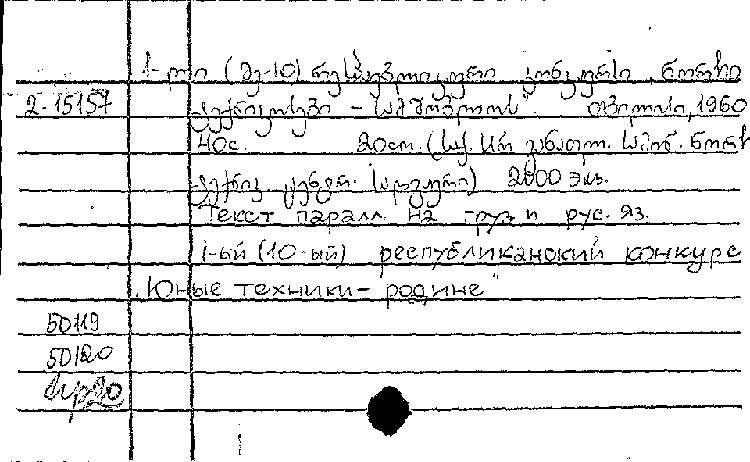 1-ლი (მე-10) რესპუბლიკური კონკურსი „ნორჩი
2-15157 ტექნიკოსები – სამშობლოს“. თბილისი, 1960
40с. 20см. (საქ. სსრ განათლ. სამინ. ნორჩ
ტექნიკ. ცენტრ. სადგური) 2000 экз.
Текст паралл. на груз и рус. яз.
1-ый (10-ый) республиканский конкурс
„Юные техники – родине"
50119
50120